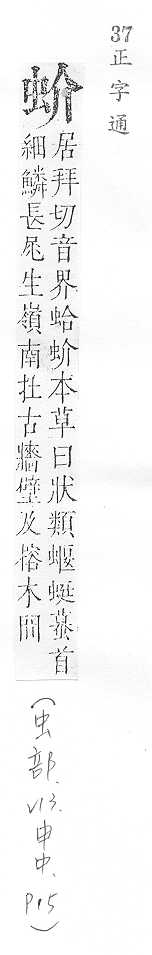 37
正字通
蚧
居拜切音界蛤蚧本草曰狀類蝘蜓蟇首
細鱗長尾生嶺南壯古牆壁及榕木間
(虫部.V13.申中.P15)